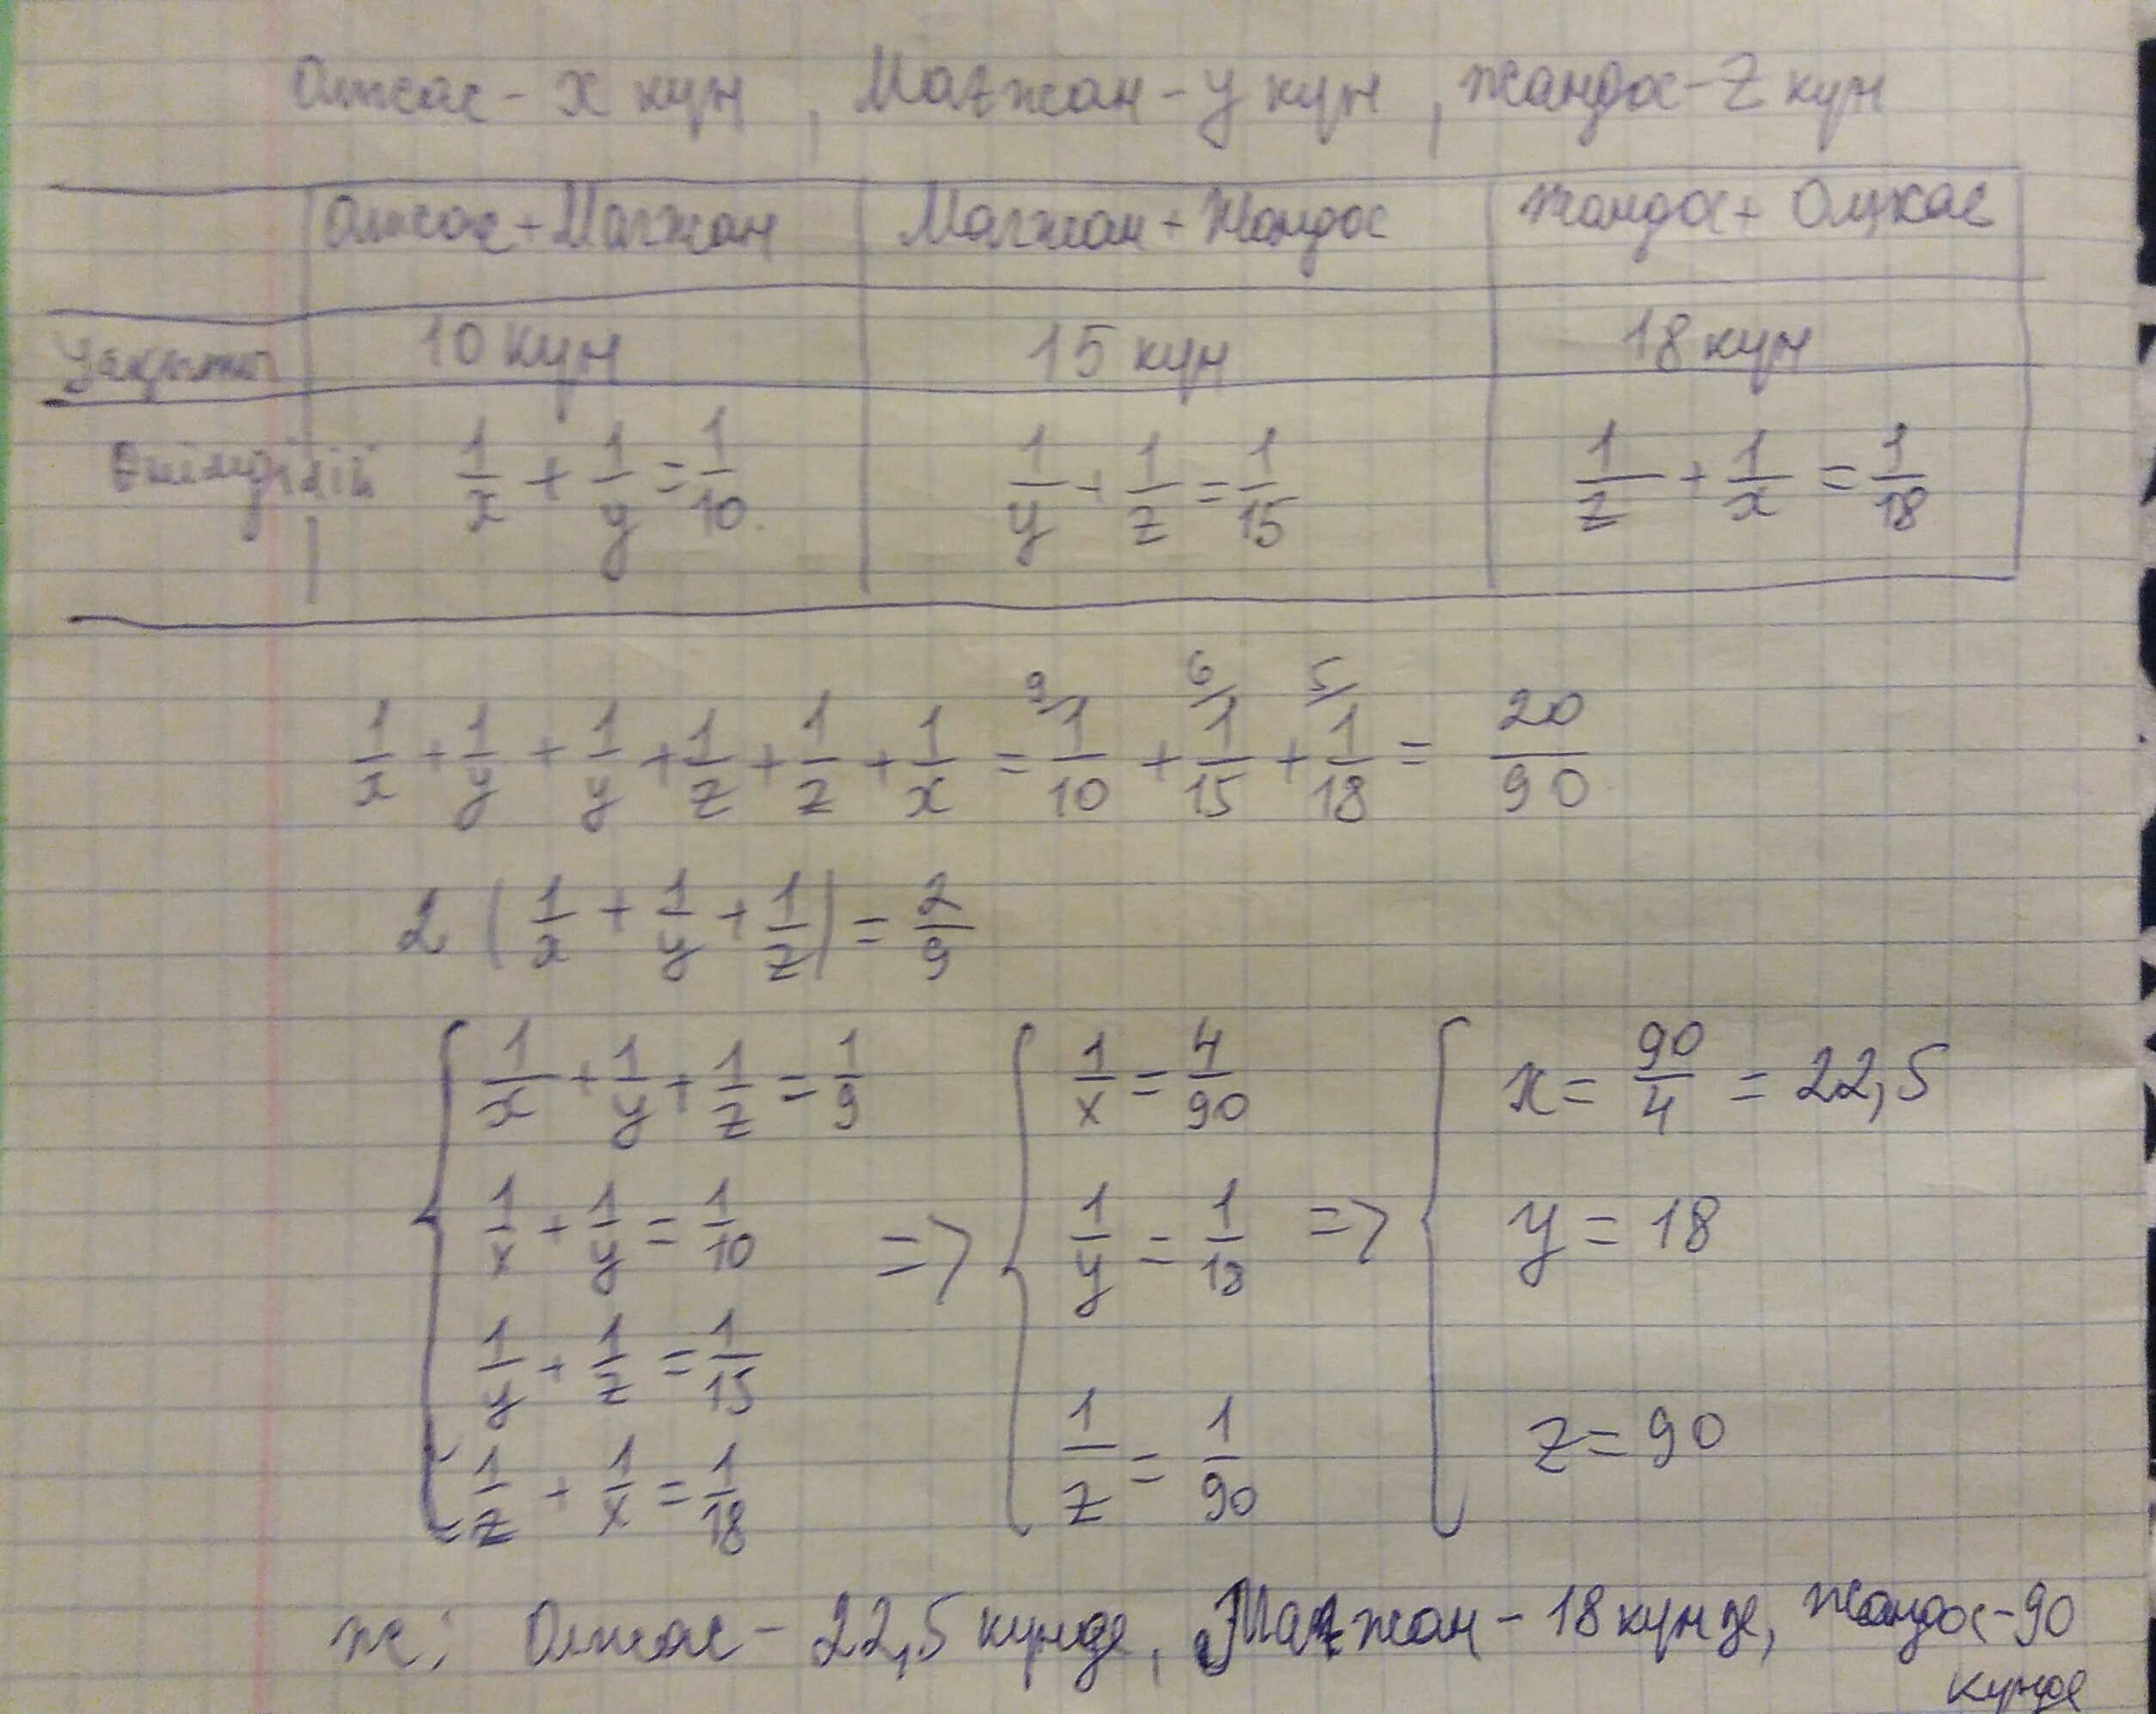 Олжас - x күн, Мағжан - y күн, Жандос - z күн
Олжас + Мағжан Мағжан + Жандос Жандос + Олжас
Уақыты 10 күн 15 күн 18 күн
Өнімділігі 1/x + 1/y = 1/10 1/y + 1/z = 1/15 1/z + 1/x = 1/18
1/x + 1/y + 1/y + 1/z + 1/z + 1/x = 9/ 1/10 + 6/ 1/15 + 5/ 1/18 = 20/90
2 (1/x + 1/y + 1/z) = 2/9
{ 1/x + 1/y + 1/z = 1/9 { 1/x = 4/90 { x = 90/4 = 22,5
1/x + 1/y = 1/10 => 1/y = 1/18 => y = 18
1/y + 1/z = 1/15
1/z + 1/x = 1/18 1/z = 1/90 z = 90
ж: Олжас - 22,5 күнде, Мағжан - 18 күнде, Жандос - 90
күнде